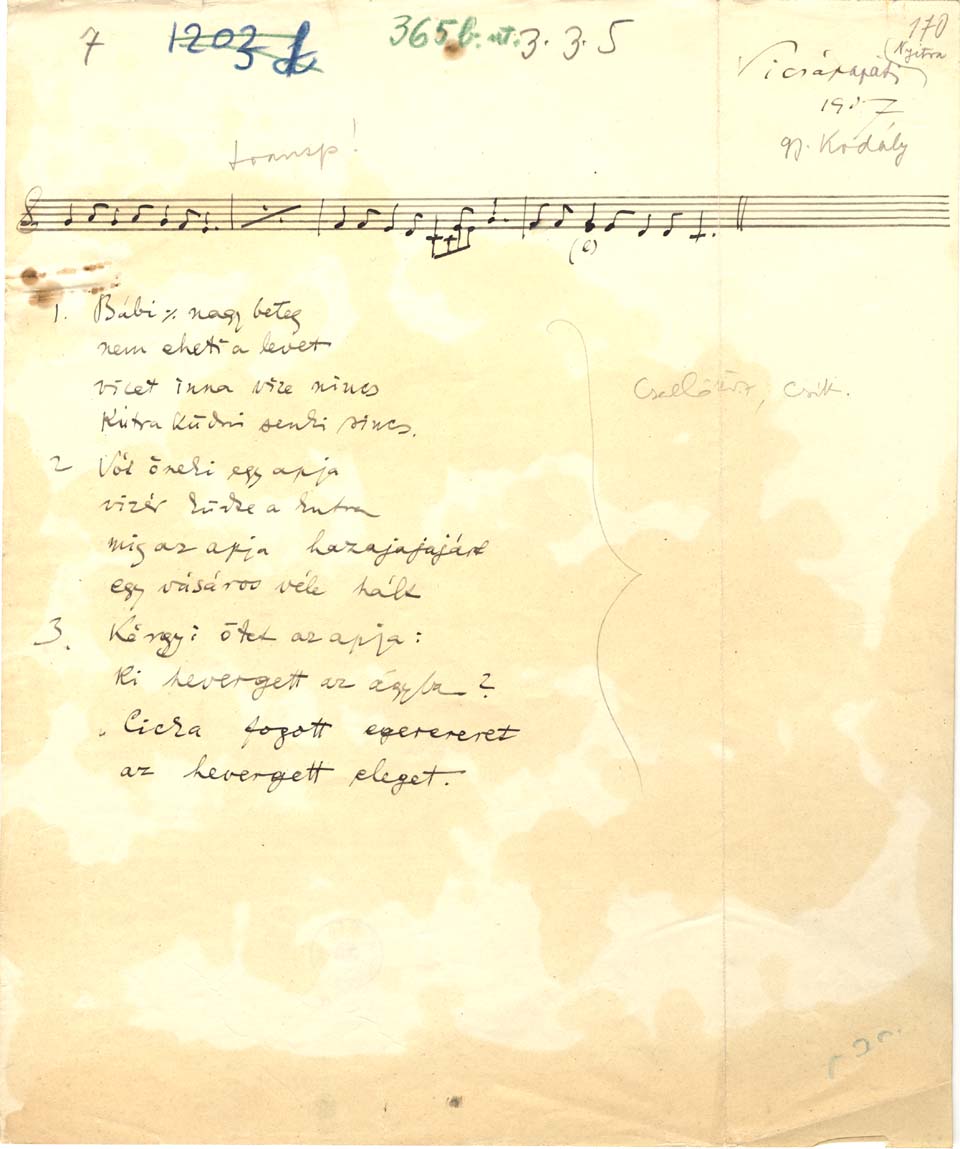 7
1203
5
365 b. ut.
3. 3. 5
170
(Nyitra)
Vicsápapáti
1907
gy. Kodály
transp!
(c)
1. Bábi ٪ nagy beteg
nem eheti a levet
vizet inna vize nincs
Kútra küdni senki sincs.
2 Vót őneki egy apja
vizér küdte a kutra
mig az apja hazajajajárt
egy vásáros véle hált
3. Kérgyi őtet az apja:
Ki hevergett az ágyba?
„Cicka fogott egerereret
az hevergett eleget.
Csallóköz, Csík.